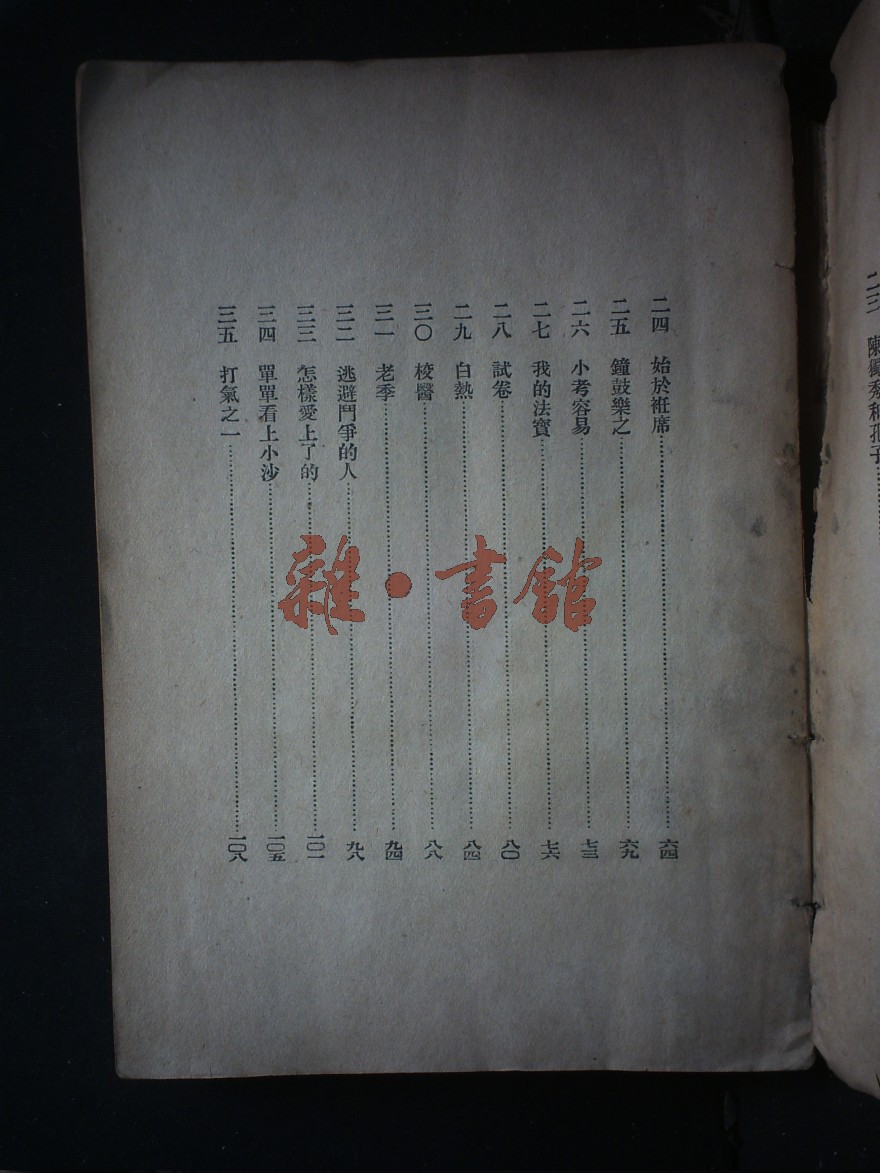 二三 陳獨秀和孔子
二四 始於袵席 六四
二五 鐘鼓樂之 六九
二六 小考容易 七三
二七 我的法寶 七六
二八 試卷 八〇
二九 白熱 八四
三〇 校醫 八八
三一 老季 九四
三二 逃避鬥爭的人 九八
三三 怎樣愛上了的 一〇一
三四 單單看上小沙 一〇五
三五 打氣之一 一〇八
雜·書館